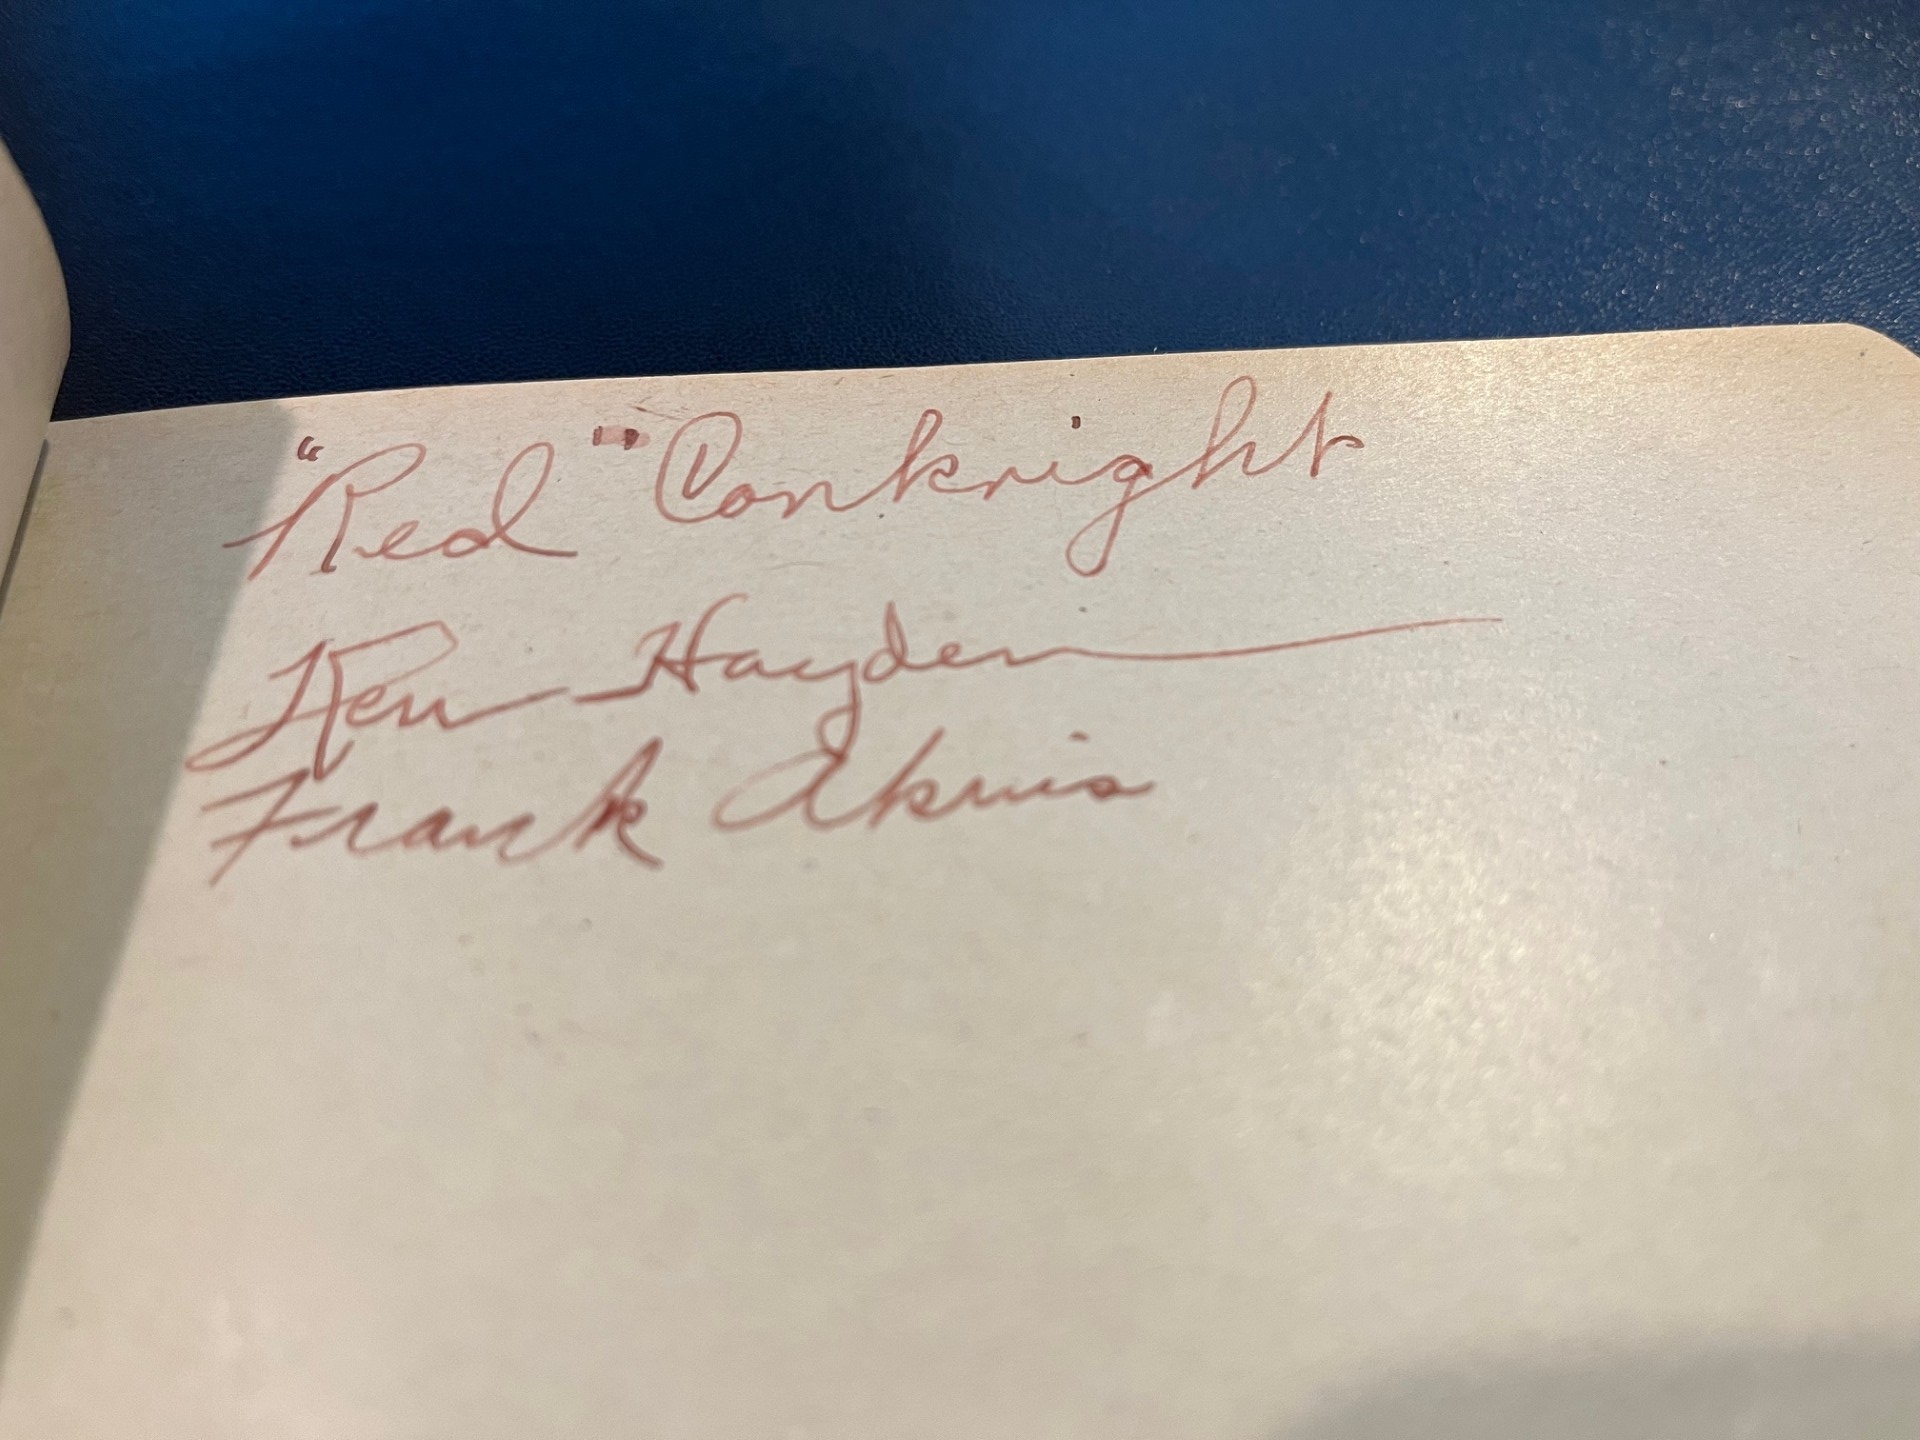 "Red" Conkright
Ken Hayden
Frank Akins